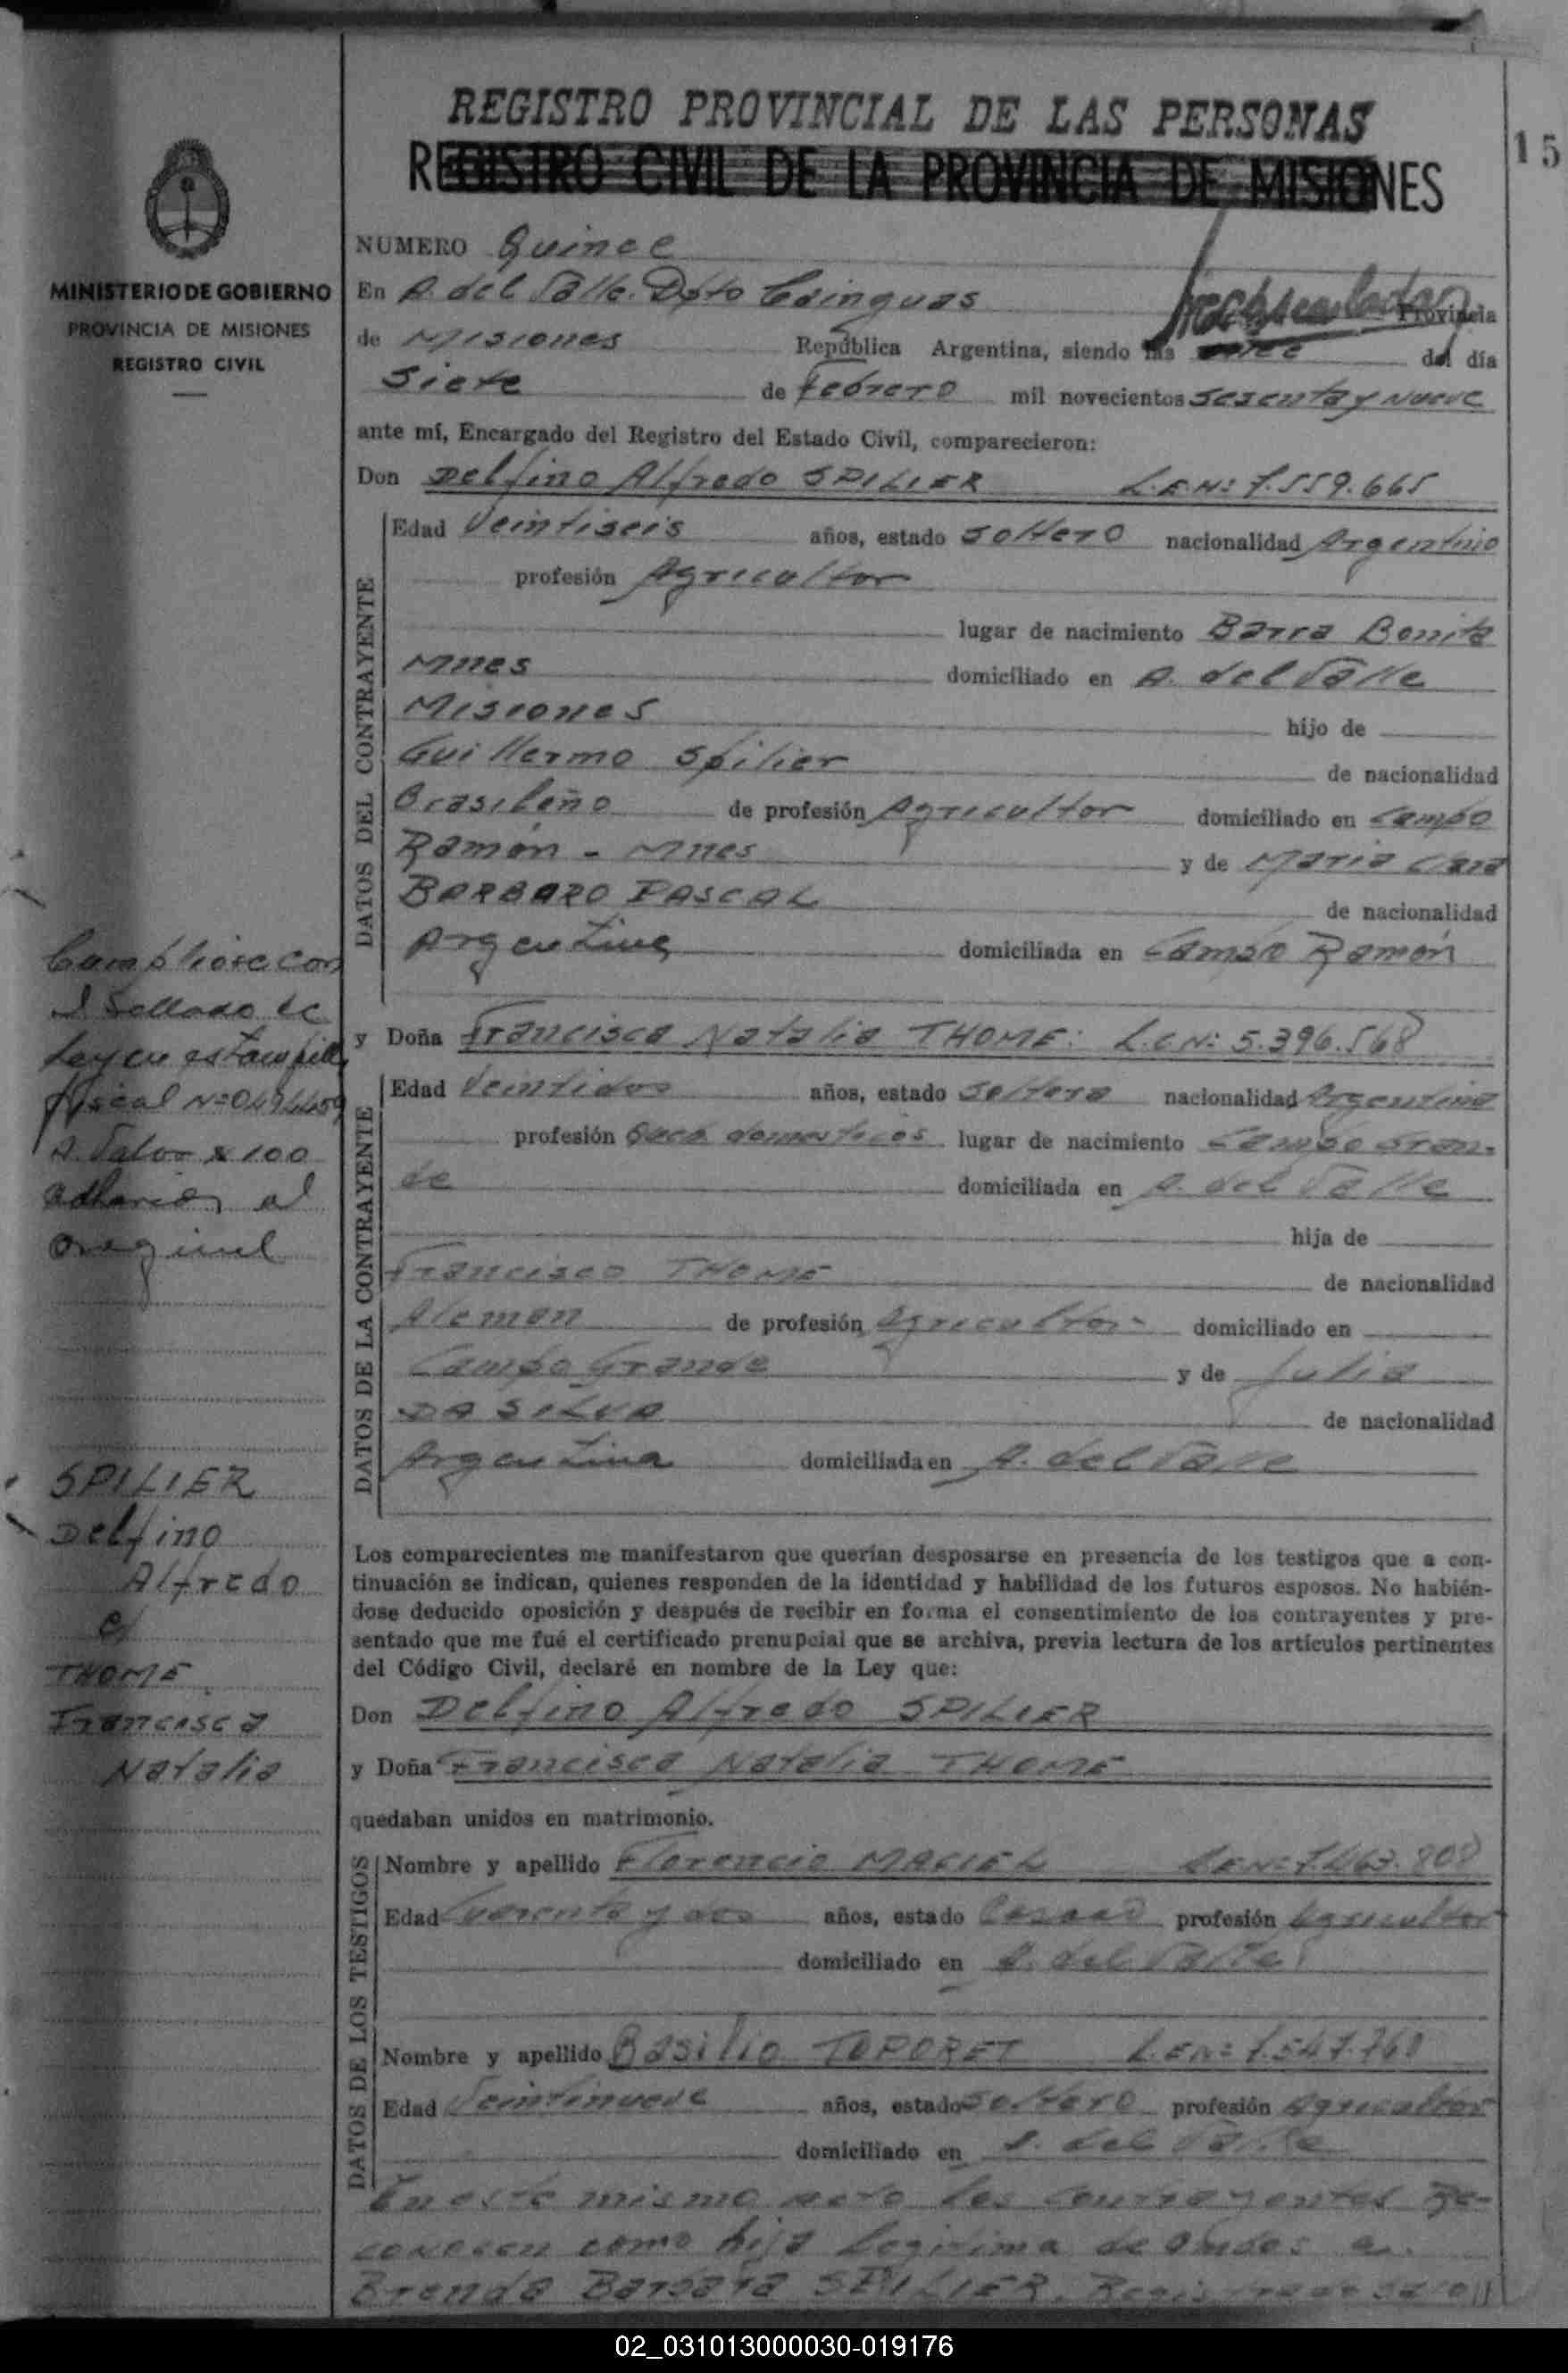 REGISTRO PROVINCIAL DE LAS PERSONAS
REGISTRO CIVIL DE LA PROVINCIA DE MISIONES
15
MINISTERIO DE GOBIERNO
PROVINCIA DE MISIONES
REGISTRO CIVIL
NUMERO Quince
En A. del Valle. Dpto Cainguas Provincia
de Misiones República Argentina, siendo las once del día
siete de Febrero mil novecientos sesenta y nueve
ante mí, Encargado del Registro del Estado Civil, comparecieron:
Don Delfino Alfredo SPILIER L.E.Nº 7.559.665
DATOS DEL CONTRAYENTE
Edad Veintiseis años, estado soltero nacionalidad Argentino
profesión Agricultor
lugar de nacimiento Barra Bonita
Mnes domiciliado en A. del Valle
Misiones hijo de
Guillermo Spilier de nacionalidad
Brasileño de profesión Agricultor domiciliado en Campo
Ramón - Mnes y de Maria Clara
BARBARO PASCAL de nacionalidad
Argentina domiciliada en Campo Ramón
y Doña Francisca Natalia THOME: L.C.Nº 5.396.568
DATOS DE LA CONTRAYENTE
Edad Veintidos años, estado Soltera nacionalidad Argentina
profesión Quea domesticos lugar de nacimiento Campo Gran-
de domiciliada en A. del Valle
hija de
Francisco THOME de nacionalidad
Aleman de profesión Agricultor domiciliado en
Campo Grande y de Julia
DA SILVA de nacionalidad
Argentina domiciliada en A. del Valle
Los comparecientes me manifestaron que querían desposarse en presencia de los testigos que a con-
tinuación se indican, quienes responden de la identidad y habilidad de los futuros esposos. No habién-
dose deducido oposición y después de recibir en forma el consentimiento de los contrayentes y pre-
sentado que me fué el certificado prenupcial que se archiva, previa lectura de los artículos pertinentes
del Código Civil, declaré en nombre de la Ley que:
Don Delfino Alfredo SPILIER
y Doña Francisca Natalia THOME
quedaban unidos en matrimonio.
DATOS DE LOS TESTIGOS
Nombre y apellido Florencio MACIEL L.E.Nº 7.463.808
Edad Cuarenta y dos años, estado Casado profesión Agricultor
domiciliado en A. del Valle
Nombre y apellido Basilio TOPORET L.E.Nº 7.547.760
Edad Veintinueve años, estado soltero profesión Agricultor
domiciliado en A. del Valle
En este mismo acto los contrayentes Re-
conocen como hija legitima de ambos a
Brenda Barbara SPILIER.
Cumpliose con
el Sellado de
Ley en estampilla
fiscal Nº
A. Valor $ 100
adherido al
original
SPILIER
Delfino
Alfredo
c/
THOME
Francisca
Natalia
02_031013000030-019176